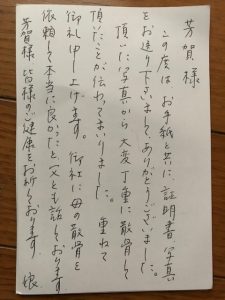 芳賀様
この度は お手紙と共に、証明書、写真
をお送り下さいまして、ありがとうございました。
頂いた写真から 大変丁重に散骨して
頂いたことが伝わってまいりました。 重ねて
御礼申し上げます。 御社に母の散骨を
依頼して本当に良かったと、父とも話しております
芳賀様 皆様のご健康をお祈りしております。 娘